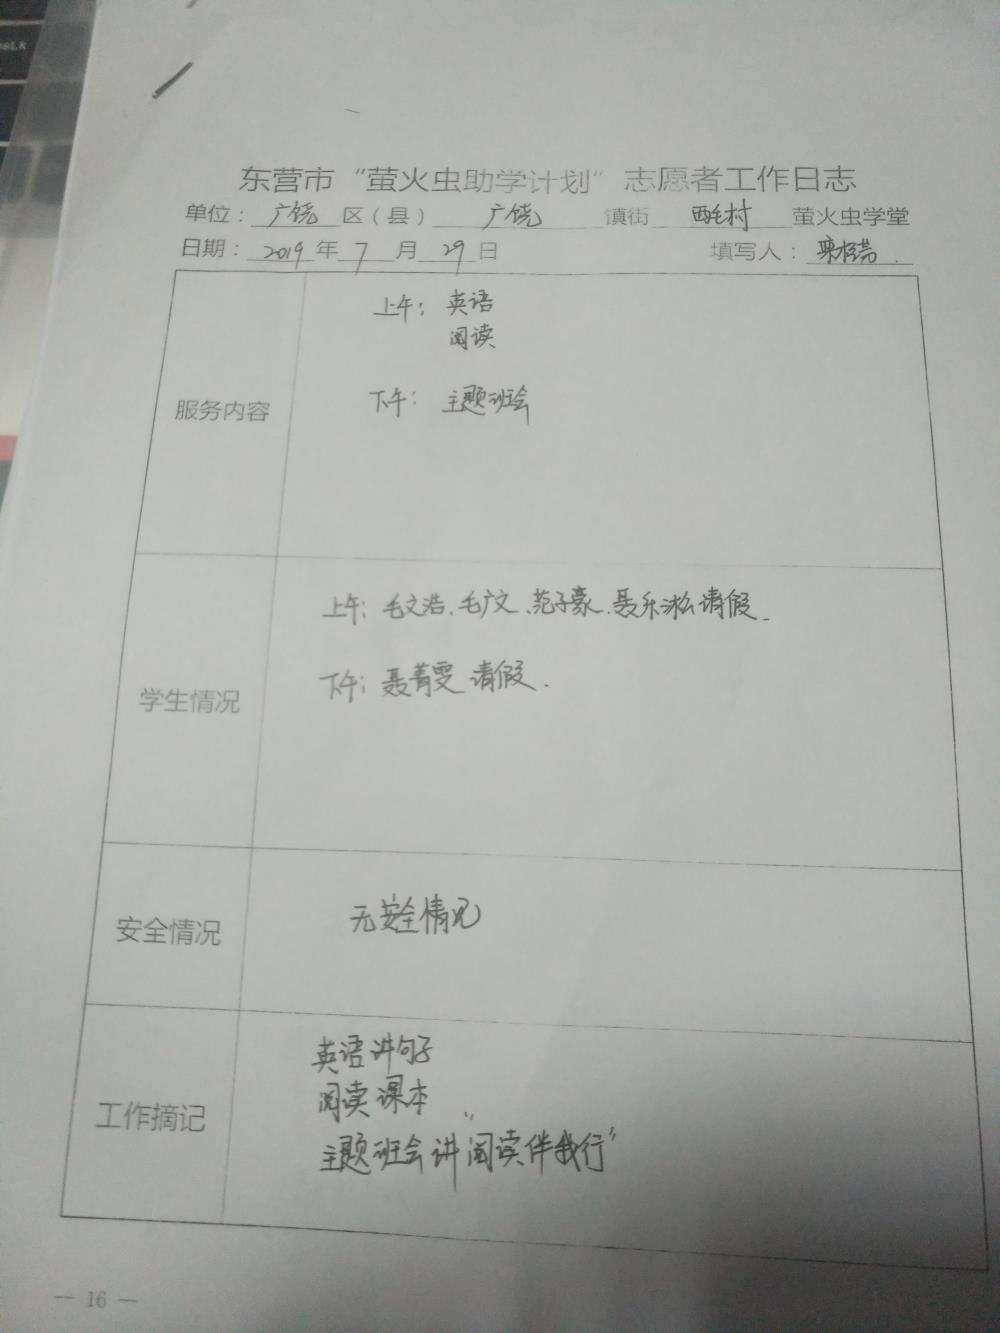 东营市“萤火虫助学计划”志愿者工作日志
单位：广饶区（县）广饶镇街 西毛村 萤火虫学堂
日期：2019年7月29日 填写人：
服务内容
上午：英语
阅读
下午：主题班会
学生情况
上午：毛文浩、毛广文、范子豪、聂乐淞请假.
下午：聂菁雯请假.
安全情况
无安全情况
工作摘记
英语讲句子
阅读课本
主题班会讲“阅读伴我行”
— 16 —